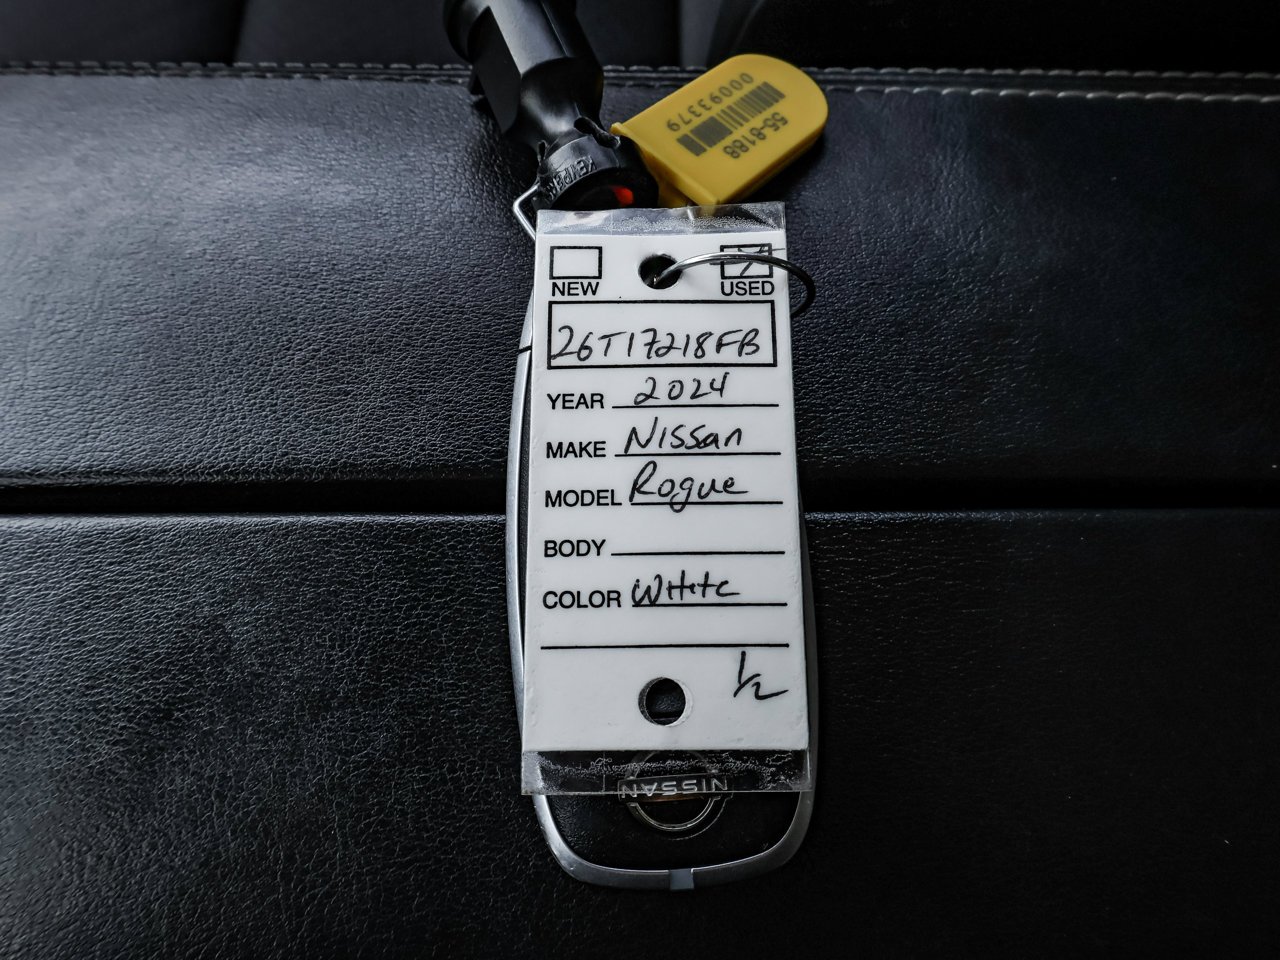 55-8188
00093379
NEW
USED
26T17218FB
YEAR 2024
MAKE Nissan
MODEL Rogue
BODY
COLOR WHite
1/2
NISSAN